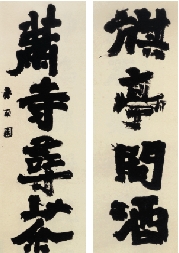 旗亭問酒
蕭寺尋茶